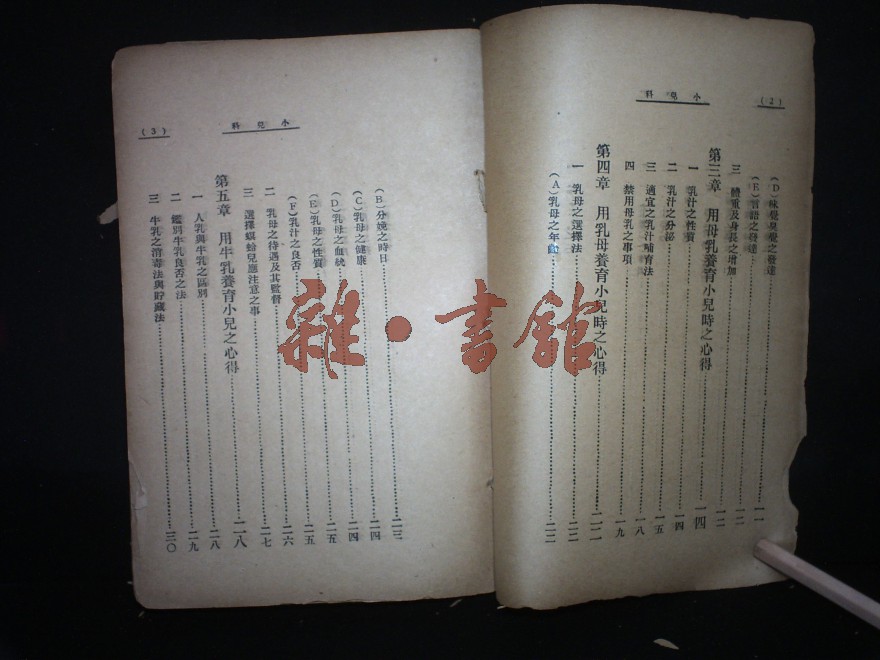 (2)
小兒科
(D)味覺臭覺之發達……一一
(E)言語之發達……一一
三 體重及身長之增加……一二
第三章 用母乳養育小兒時之心得……一四
一 乳汁之性質……一四
二 乳汁之分泌……一五
三 適宜之乳汁哺育法……一八
四 禁用母乳之事項……一九
第四章 用乳母養育小兒時之心得……二二
一 乳母之選擇法……二二
(A)乳母之年齡……二二
小兒科
(3)
(B)分娩之時日……二三
(C)乳母之健康……二四
(D)乳母之血統……二四
(E)乳母之性質……二五
(F)乳汁之良否……二五
二 乳母之待遇及其監督……二六
三 選擇螟蛉兒應注意之事……二七
第五章 用牛乳養育小兒之心得……二八
一 人乳與牛乳之區別……二八
二 鑑別牛乳良否之法……二九
三 牛乳之消毒法與貯藏法……三〇
雜·書館